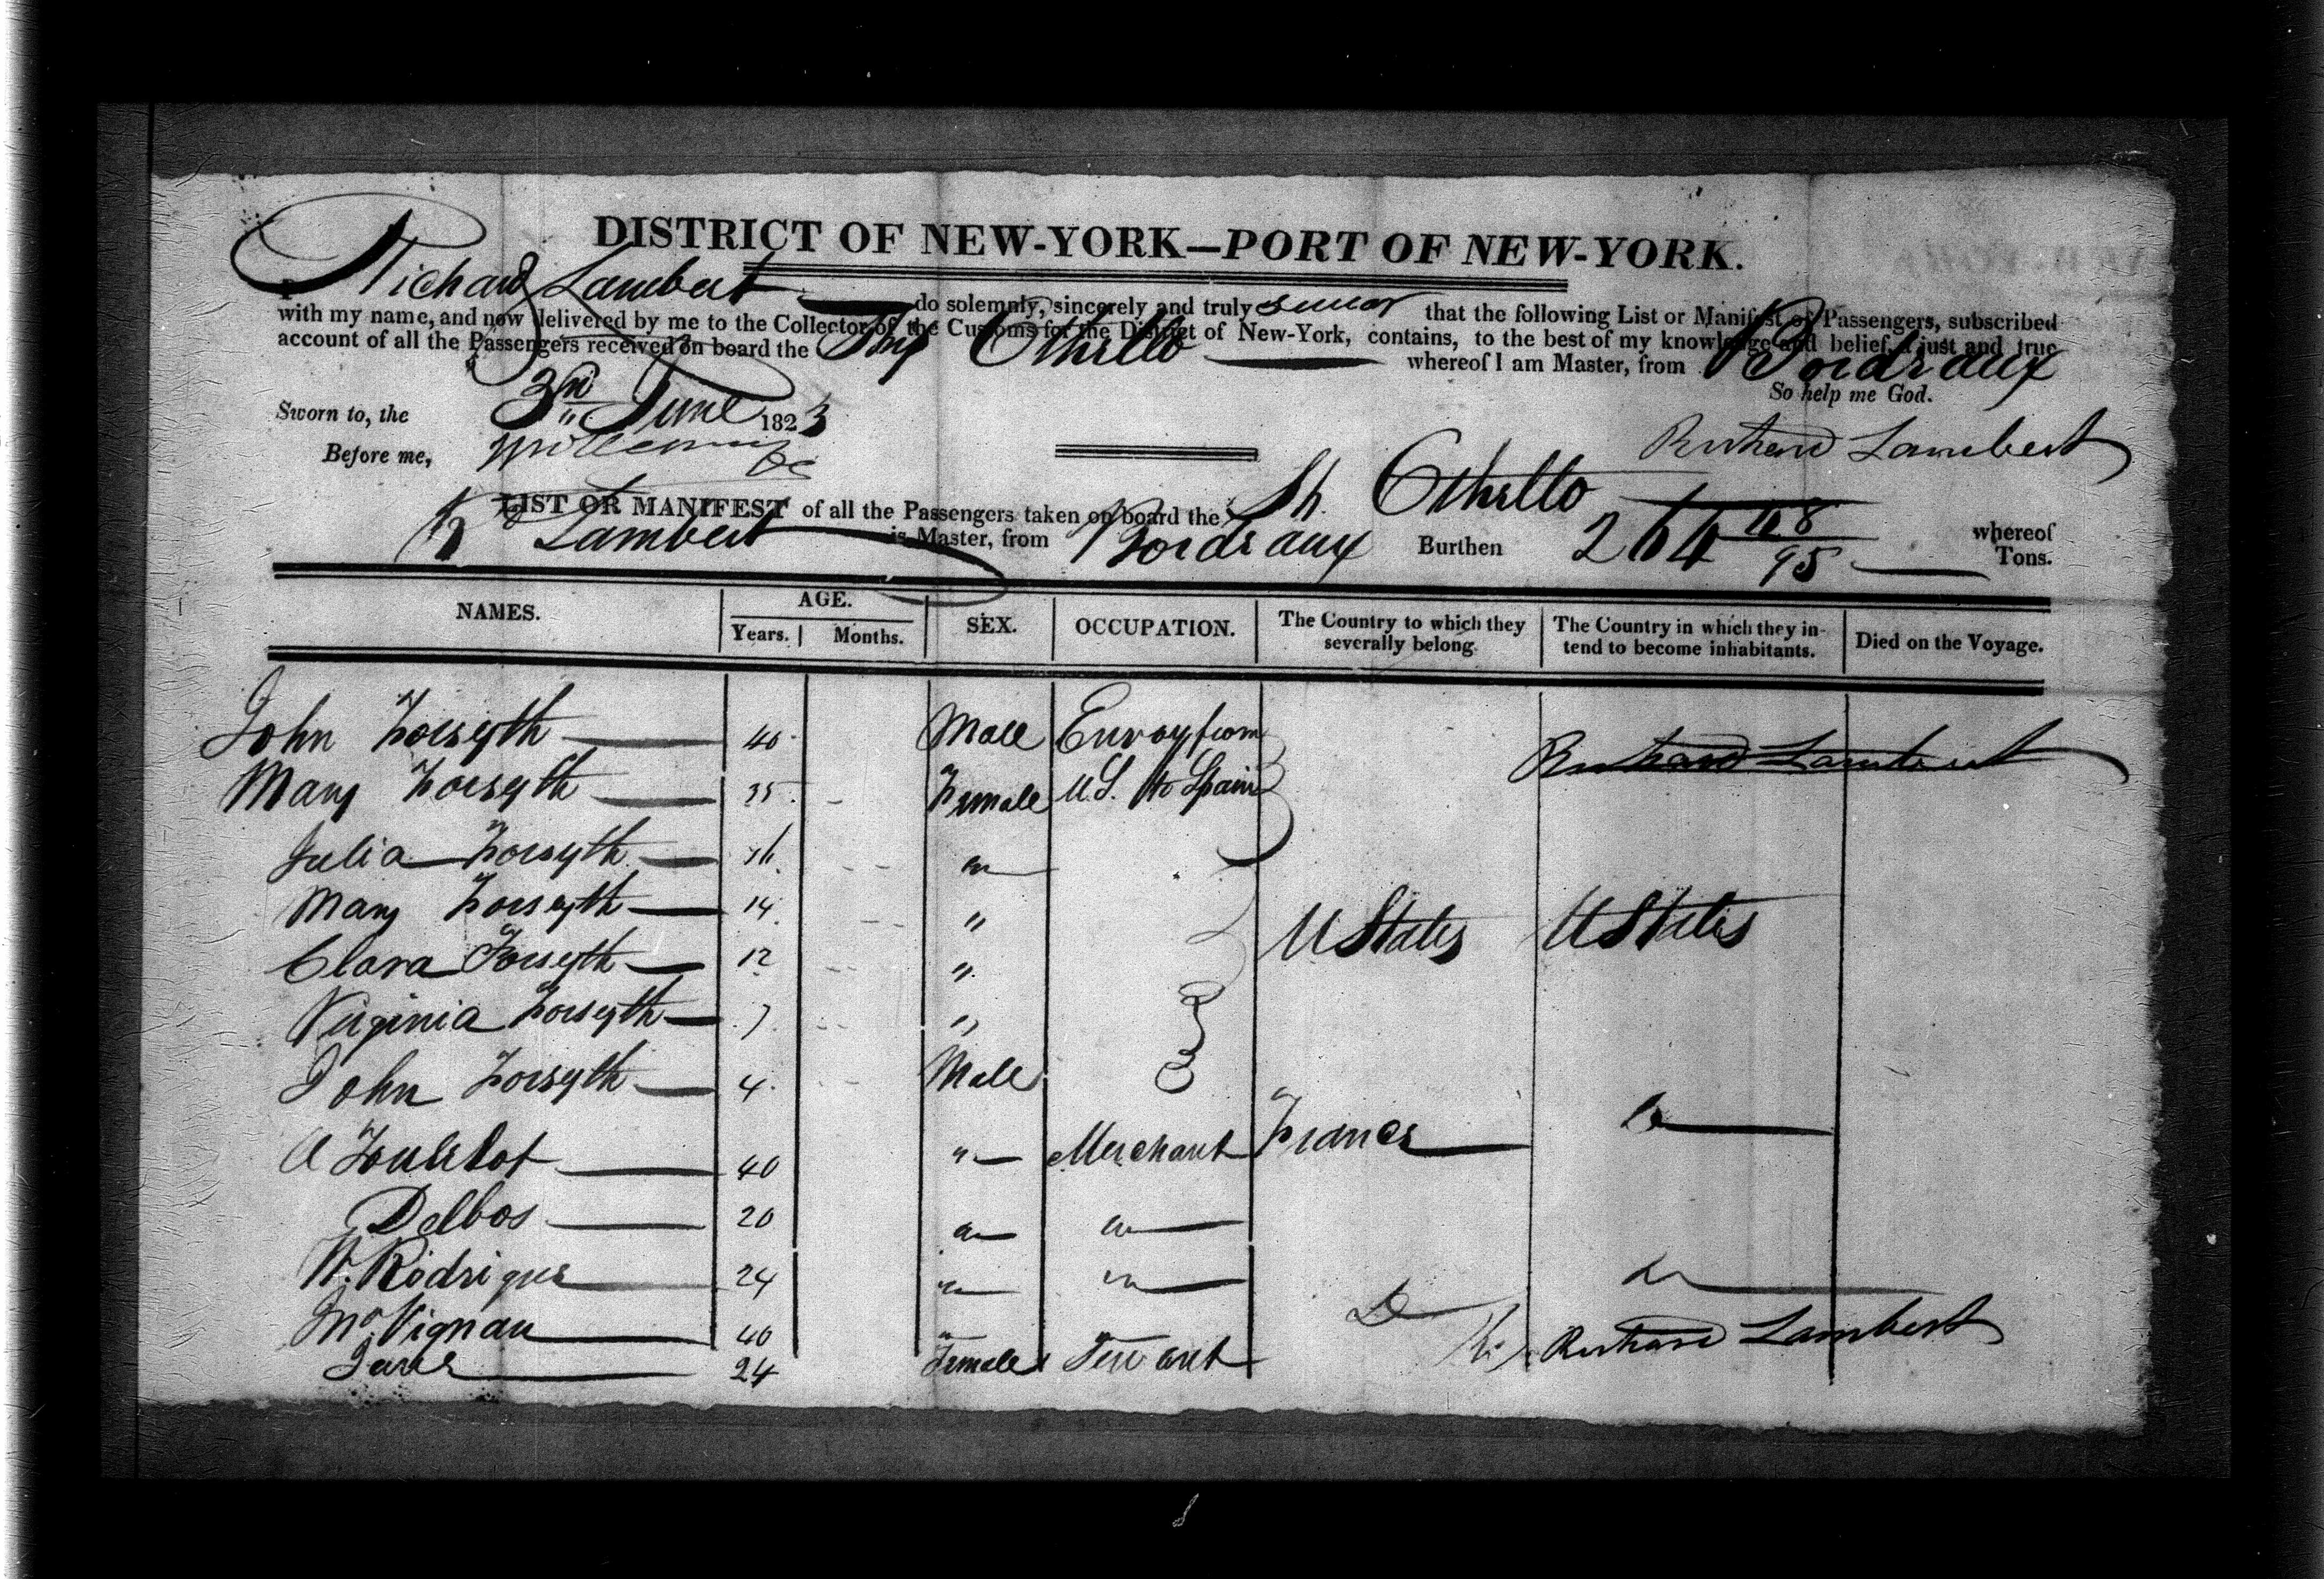 DISTRICT OF NEW-YORK—PORT OF NEW-YORK.
I Richard Lambert do solemnly, sincerely and truly swear that the following List or Manifest of Passengers, subscribed
with my name, and now delivered by me to the Collector of the Customs for the District of New-York, contains, to the best of my knowledge and belief, a just and true
account of all the Passengers received on board the Ship Othello whereof I am Master, from Bordeaux
So help me God.
Sworn to, the 3rd June 1823
Richard Lambert
Before me,
LIST OR MANIFEST of all the Passengers taken on board the Sh. Othello whereof
R Lambert is Master, from Bordeaux Burthen 264 48/95 Tons.
NAMES. AGE. Years. Months. SEX. OCCUPATION. The Country to which they severally belong. The Country in which they intend to become inhabitants. Died on the Voyage.
John Forsyth 40 Male Envoy from Richard Lambert
Mary Forsyth 35 Female U.S. to Spain
Julia Forsyth 16 "
Mary Forsyth 14 "
Clara Forsyth 12 " U States U States
Virginia Forsyth 7 "
John Forsyth 4 Male
A 40 " Merchant France Do
Delbos 20 " "
W. Rodrigues 24 " " Do
Vignau 40 " Do
Jane 24 Female Servant Richard Lambert